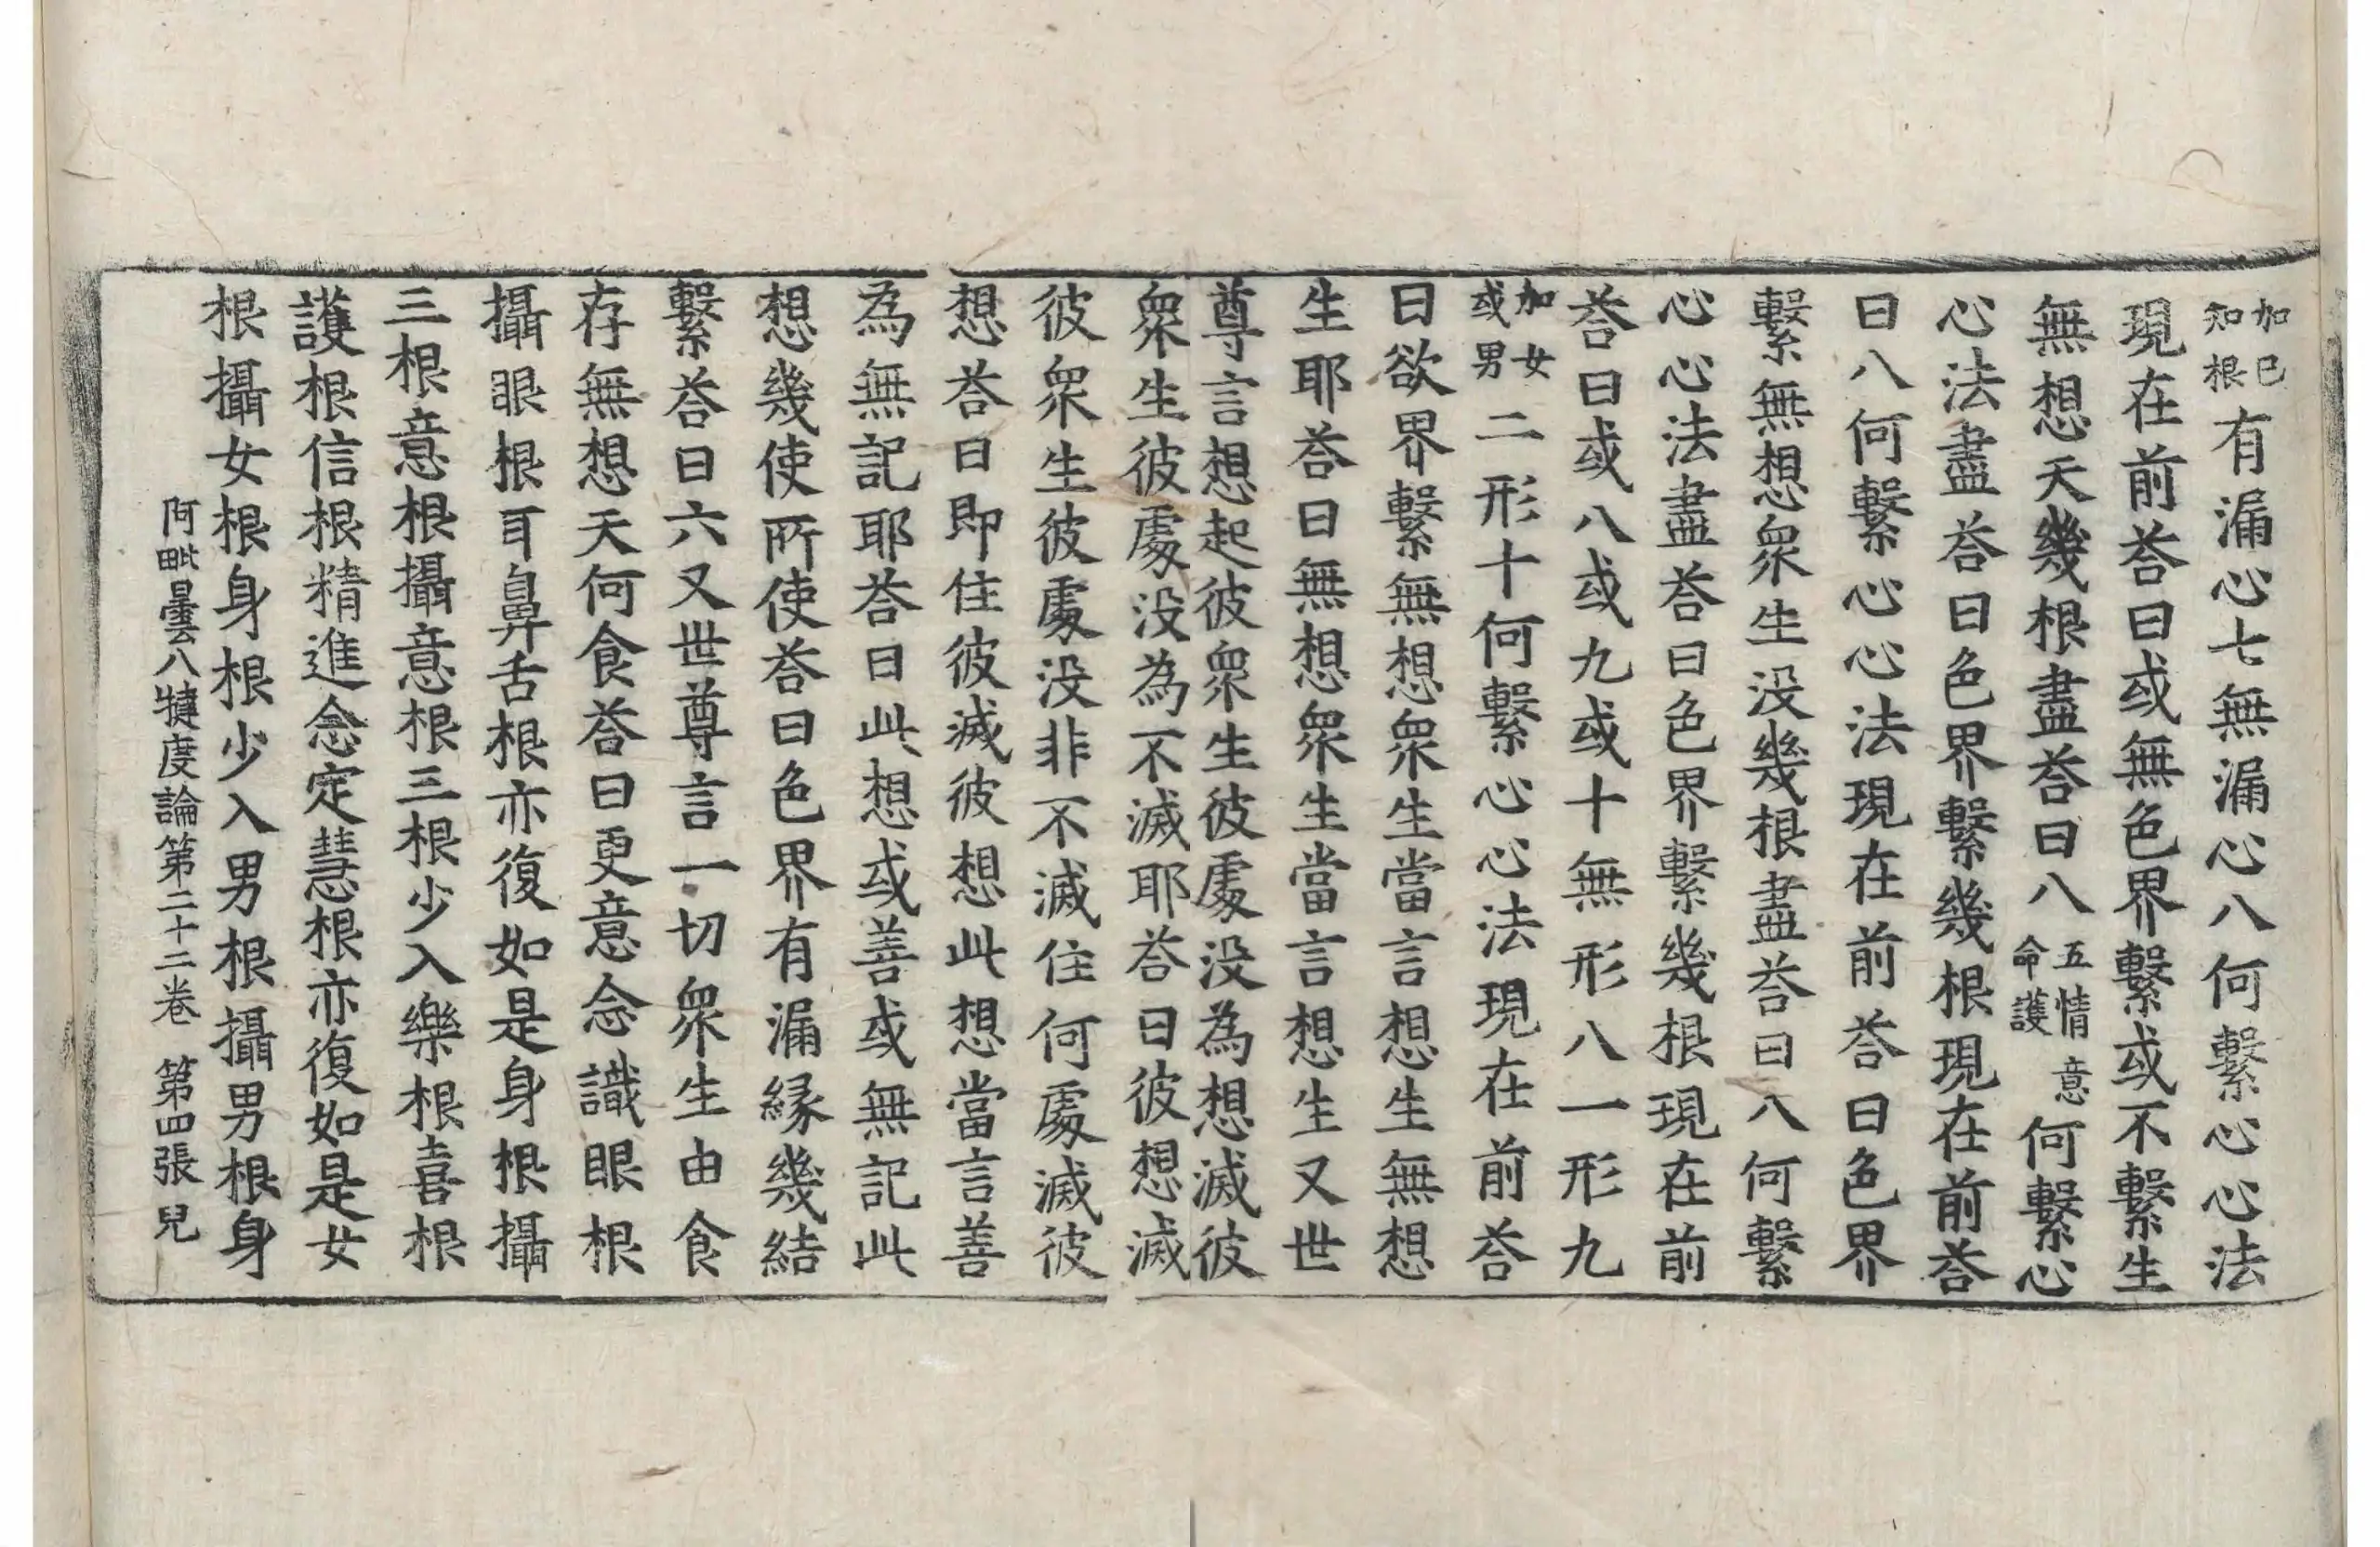 加已知根有漏心七無漏心八何繫心心法
現在前荅曰或無色界繫或不繫生
無想天幾根盡荅曰八五情意命護何繫心
心法盡荅曰色界繫幾根現在前荅
曰八何繫心心法現在前荅曰色界
繫無想衆生没幾根盡荅曰八何繫
心心法盡荅曰色界繫幾根現在前
荅曰或八或九或十無形八一形九
加女或男二形十何繫心心法現在前荅
曰欲界繫無想衆生當言想生無想
生耶荅曰無想衆生當言想生又世
尊言想起彼衆生彼處没為想滅彼
衆生彼處没為不滅耶荅曰彼想滅
彼衆生彼處没非不滅住何處滅彼
想荅曰即住彼滅彼想此想當言善
為無記耶荅曰此想或善或無記此
想幾使所使荅曰色界有漏緣幾結
繫荅曰六又世尊言一切衆生由食
存無想天何食荅曰更意念識眼根
攝眼根耳鼻舌根亦復如是身根攝
三根意根攝意根三根少入樂根喜根
護根信根精進念定慧根亦復如是女
根攝女根身根少入男根攝男根身
阿毗曇八犍度論第二十二卷　第四張　兒